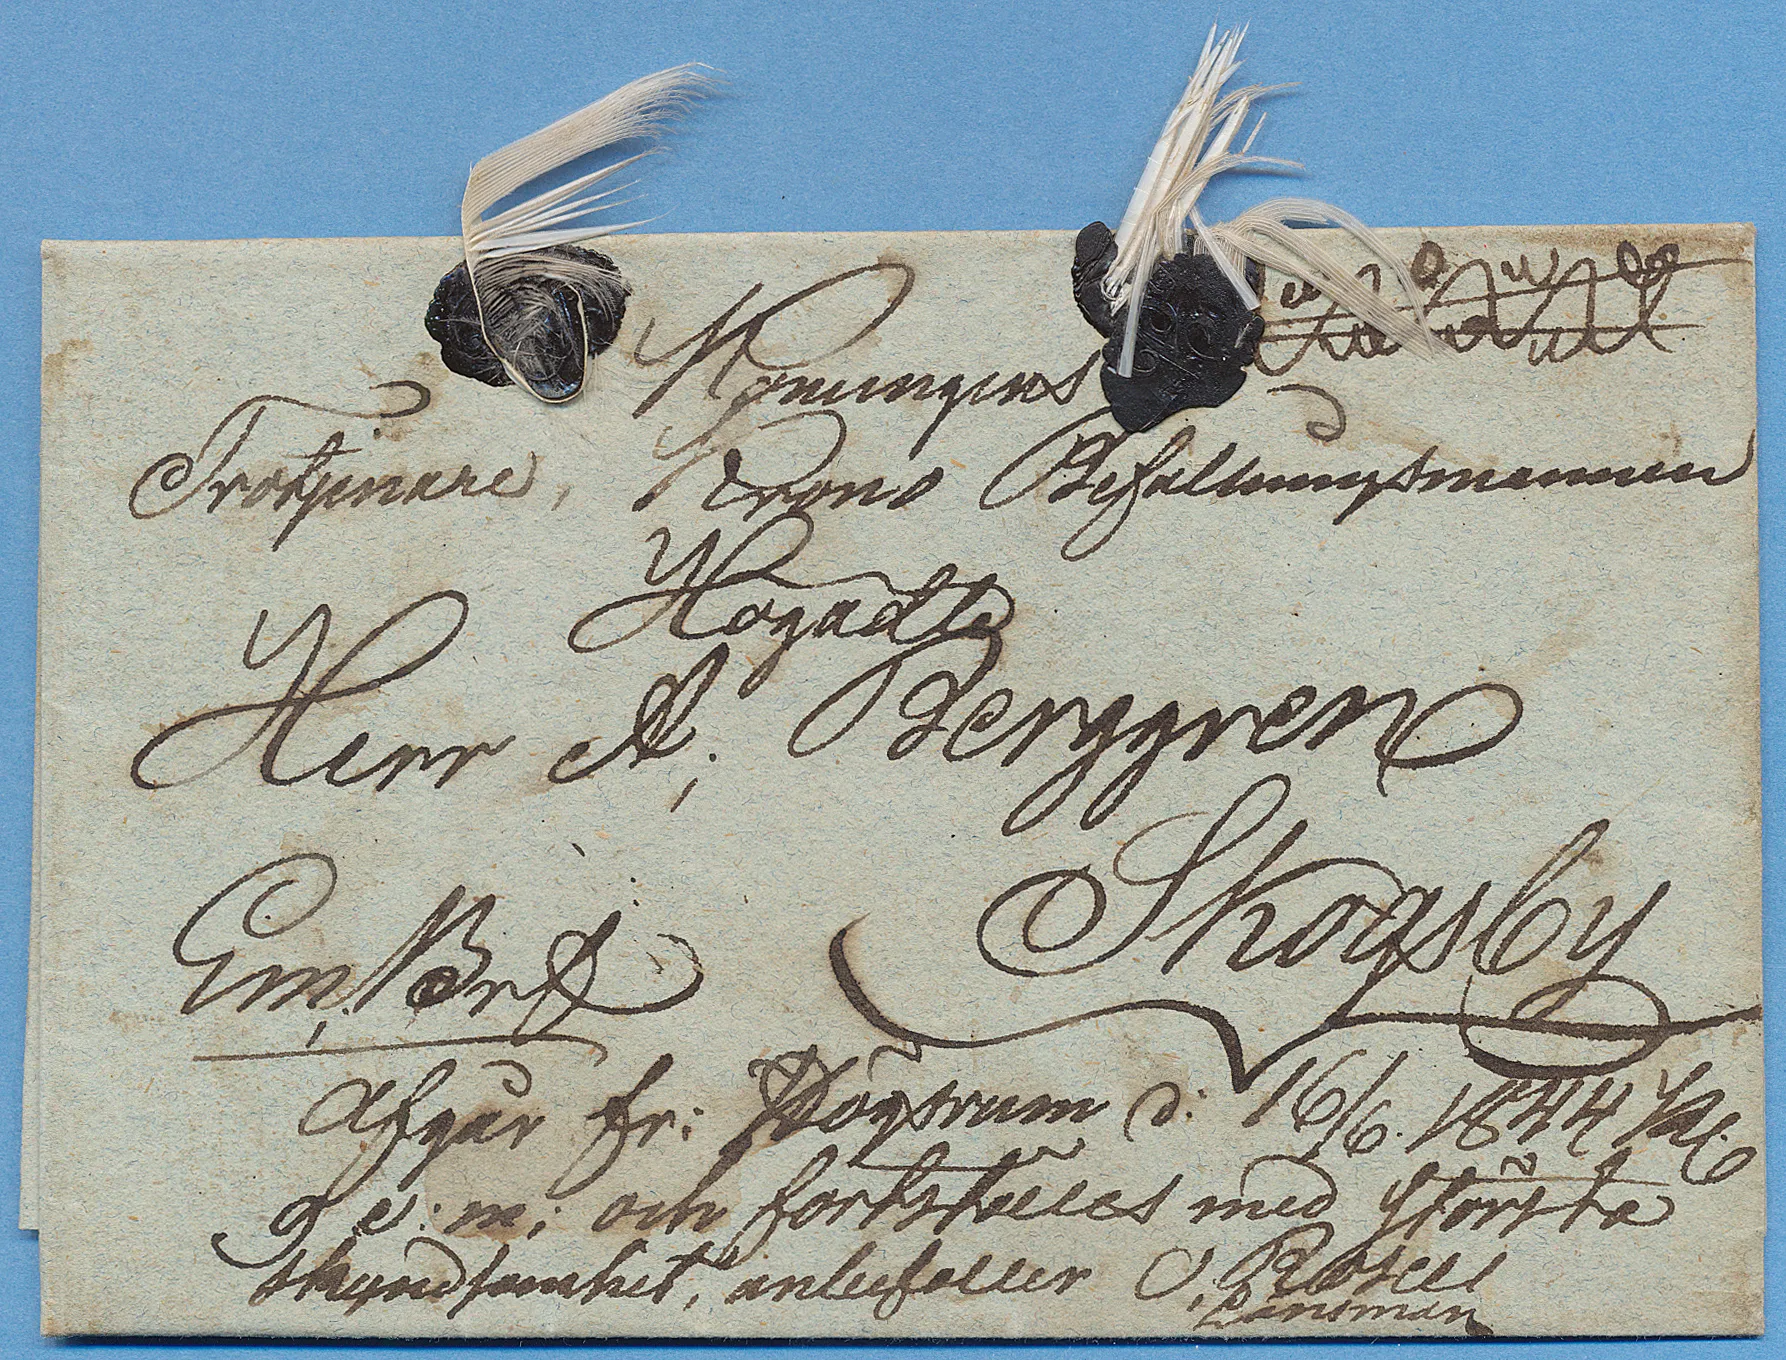 Konungens
Trotjenare, Krono Befallningsmannen
Högädle
Herr A; Berggren
Skogsby
Em; Bref
Afgår fr: Högsrum d: 16/6. 1844 Kl. 6
e: m; och fortskaffes med största
skyndsamhet, anbefaller O, Rosell
Länsman